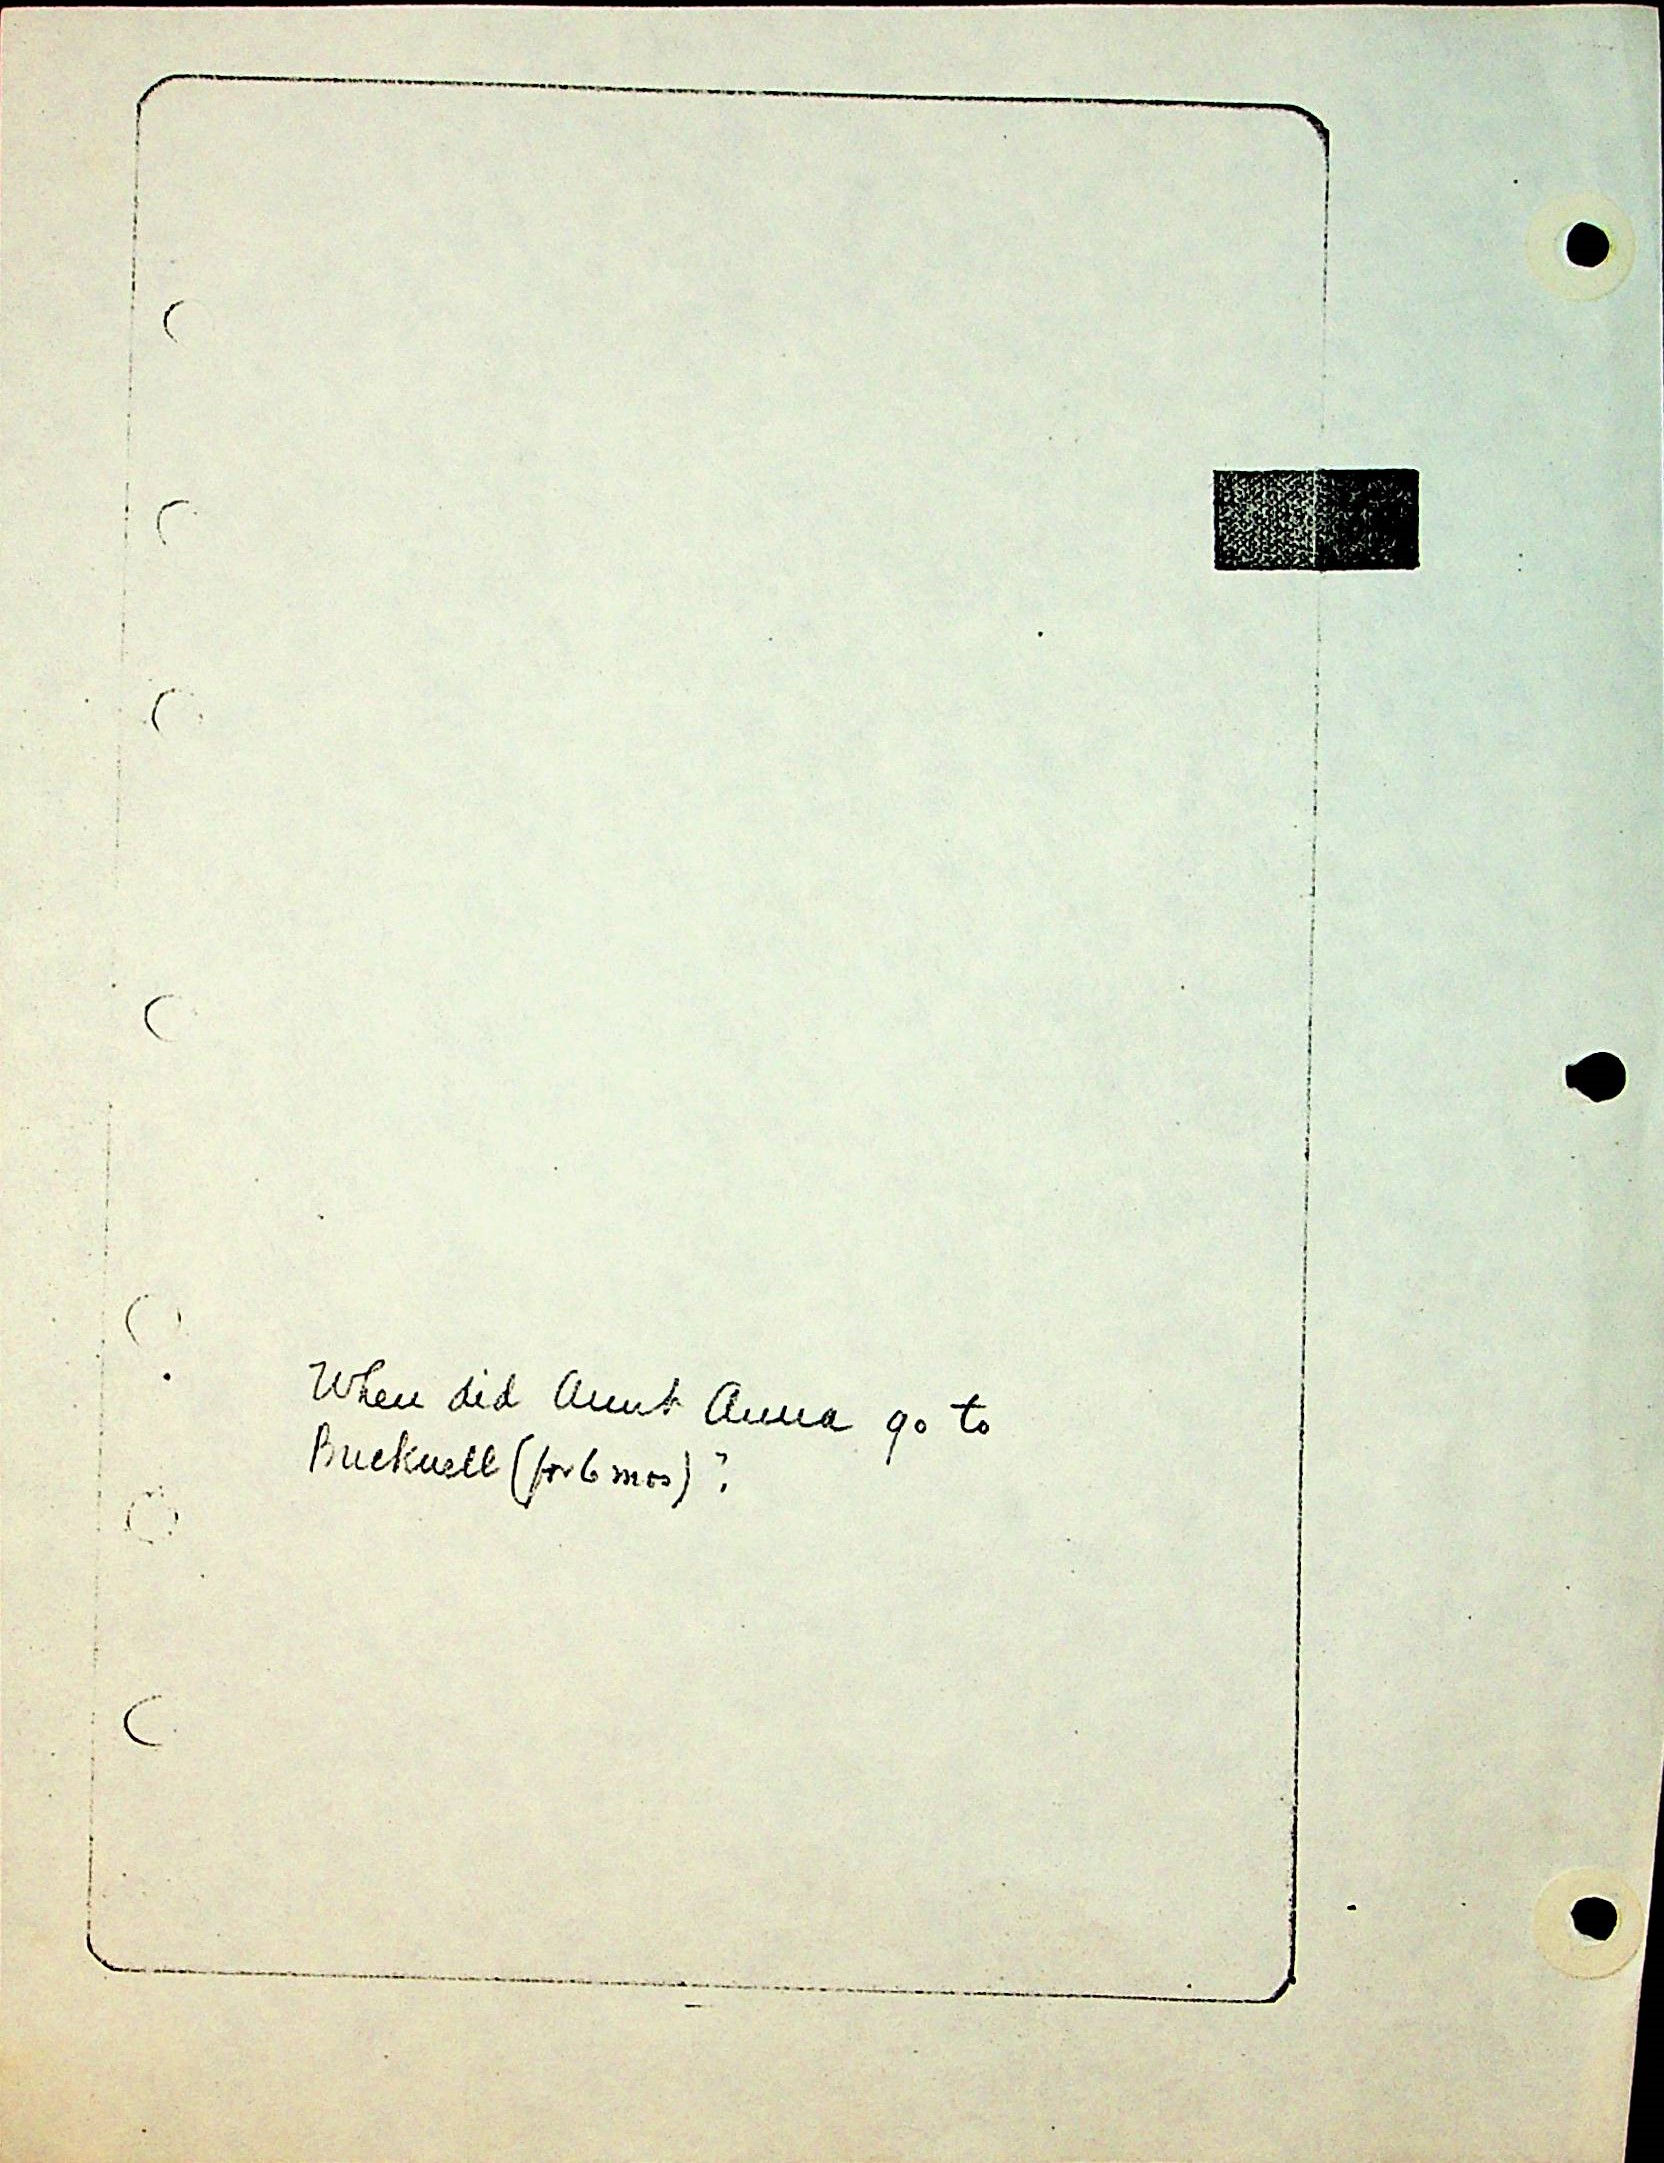 When did Aunt Anna go to
Bucknell (for 6 mos) ?